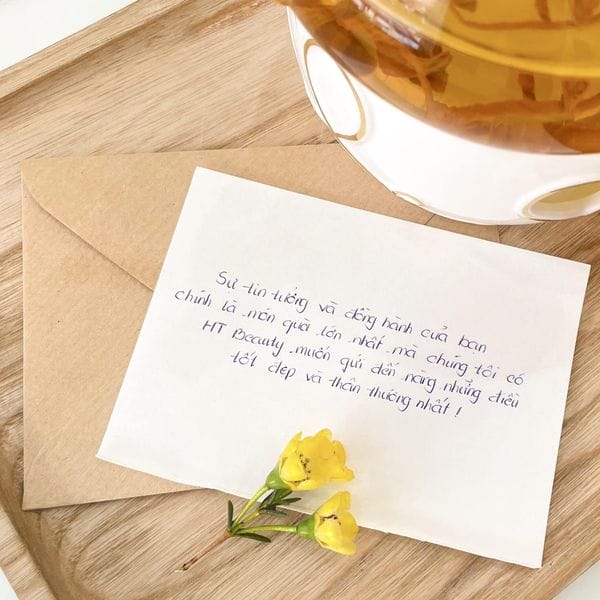 Sự tin tưởng và đồng hành của bạn
chính là món quà lớn nhất mà chúng tôi có
HT Beauty muốn gửi đến nàng những điều
tốt đẹp và thân thương nhất !